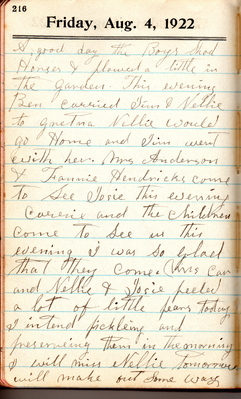 216
Friday, Aug. 4, 1922
A good day the Boys shod
Horses & plowed a little in
the Garden. This evening
Ben carried Jim & Nellie
to Gretna Nellie would
go Home and Jim went
with her. Mrs Anderson
& Fannie Hendricks come
to See Josie this evening
Carrie and the Children
come to See us this
evening I was so Glad
that they come. Mrs Car
and Nellie & Josie peeled
a lot of little pears today
I intend pickleing and
preserveing them in the morning
I will miss Nellie tomorrow
will make out some way